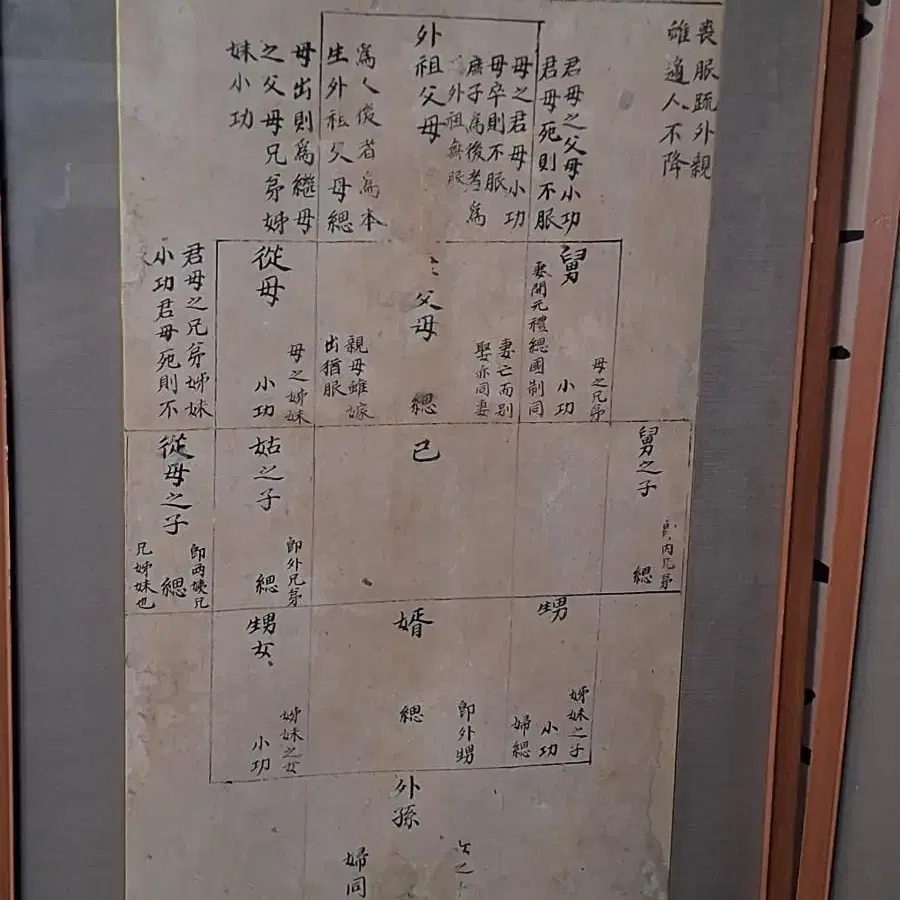 喪服疏外親
雖適人不降
外祖父母
君母之父母小功
君母死則不服
母之君母小功
母卒則不服
庶子為後者為
外祖無服
為人後者為本
生外祖父母緦
母出則爲繼母
之父母兄弟姊
妹小功
舅
母之兄弟
小功
妻開元禮緦國制同
父母
緦
妻亡而別
娶亦同妻
親母雖嫁
出猶服
從母
母之姊妹
小功
君母之兄弟姊妹
小功君母死則不
舅之子
即內兄弟
緦
己
姑之子
即外兄弟
緦
從母之子
即兩姨兄
緦
兄姊妹也
甥
姊妹之子
小功
婦緦
婿
即外甥
緦
甥女
姊妹之女
小功
外孫
婦同